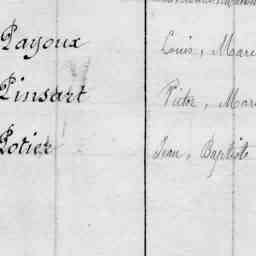 Payoux Louis, Marie
Pinsart Victor, Mar
Potier Jean, Baptiste